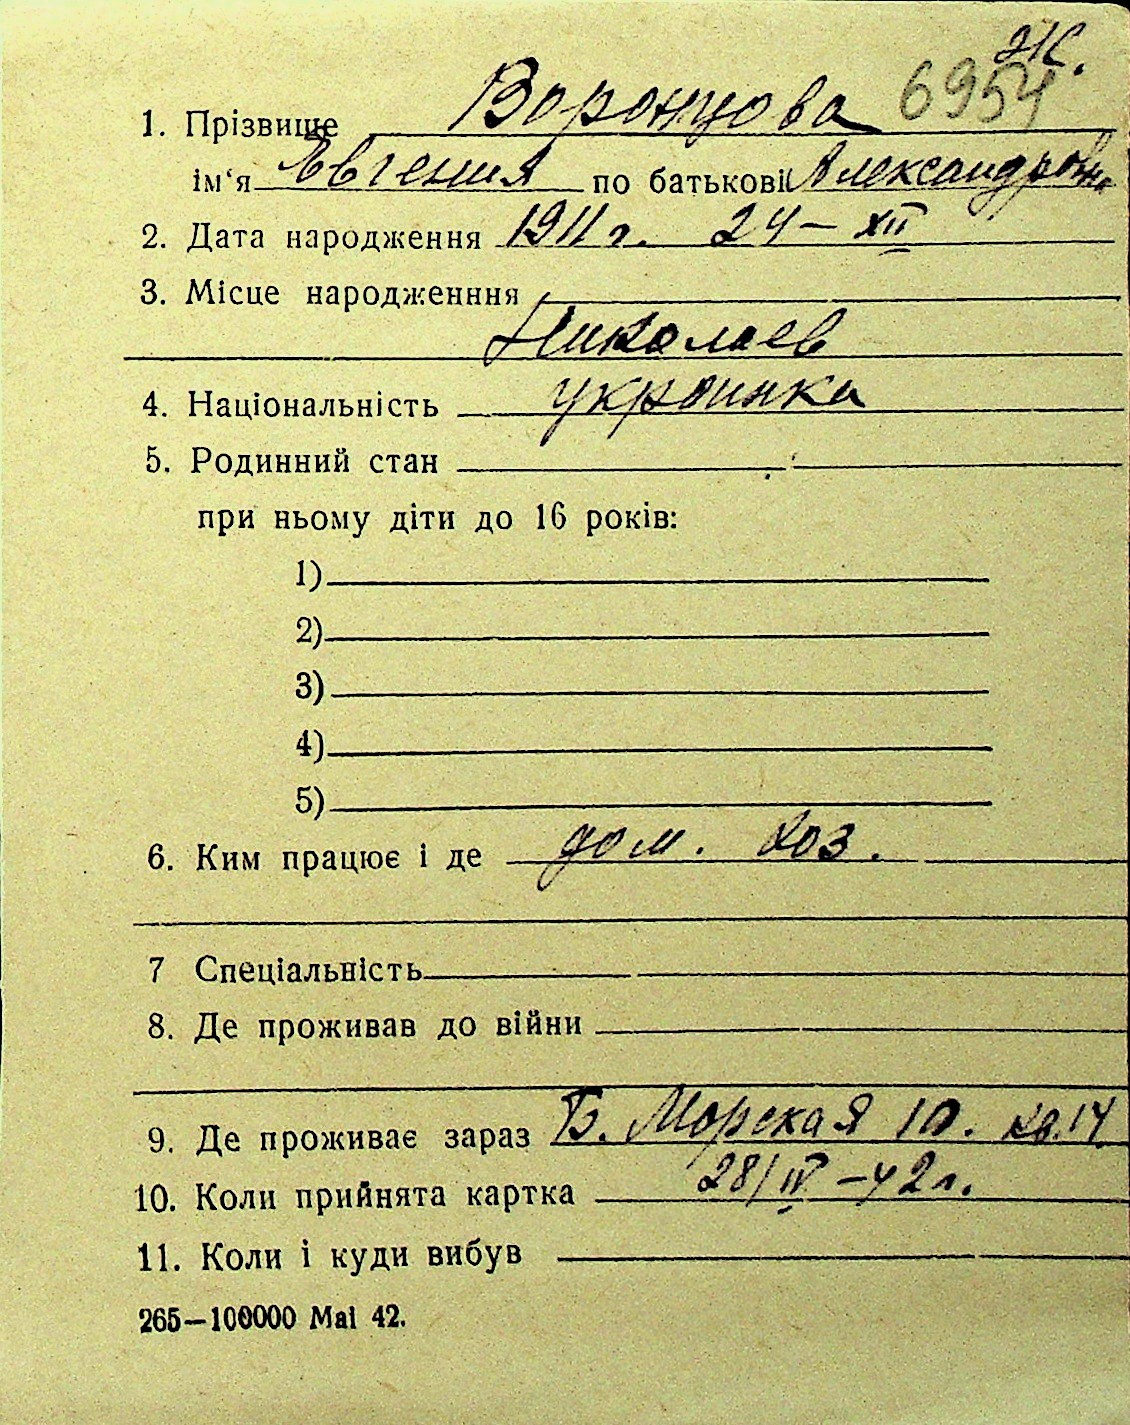 Ж.
6954
1. Прізвище Воронцова
ім‘я Евгения по батькові Александровна
2. Дата народження 1911 г. 24 – XII
3. Місце народженння
Николаев
4. Національність украинка
5. Родинний стан
при ньому діти до 16 років:
1)
2)
3)
4)
5)
6. Ким працює і де дом. хоз.
7 Спеціальність
8. Де проживав до війни
9. Де проживає зараз Б. Морская 10. кв. 14
10. Коли прийнята картка 28/IV – 42 г.
11. Коли і куди вибув
265—100000 Mai 42.